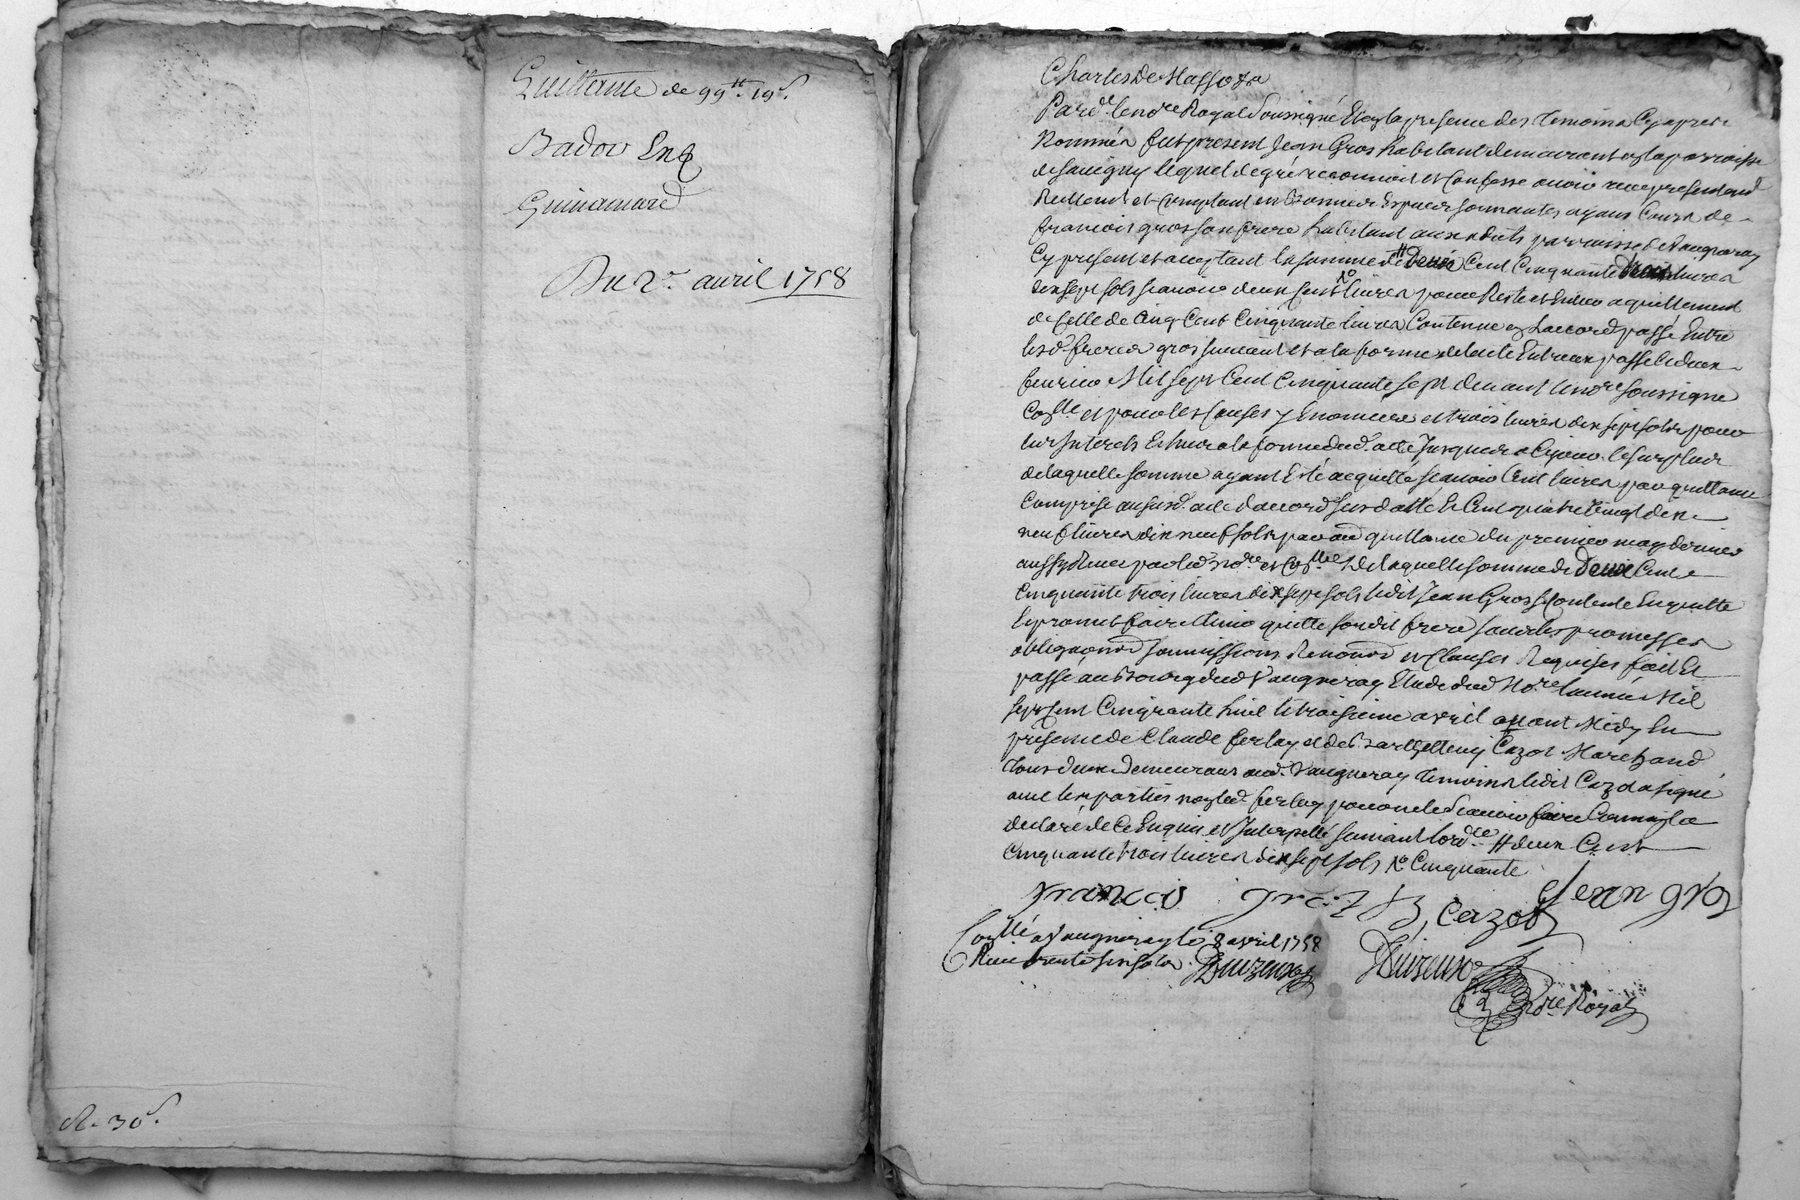 Quittance de 99₶ 19s.
Badov
Guinamard
Du 2e avril 1758
R. 30s.
Charles de
Pard.t le no.re Royal soussigné Et en la presence des temoins Cy apres
Nommés fut present Jean Gros habitant demeurant en la parroisse
de Savigny lequel de gré reconnoit et Confesse avoir receu presentem.t
Reellement et Comptant en bonnes Especes sonnantes ayans Cours de
francois gros son frere habitant aux parroisse de Vaugneray
Cy present et acceptant la somme de # Deux Cent Cinquante trois livres
dix sept sols scavoir deux cent No livres pour Reste et Entier acquittement
de Celle de Cinq Cent Cinquante livres Contenue en L'accord passé Entre
lesd. freres gros suivant et a la forme de l'acte Entreux passé le deux
fevrier Mil sept Cent Cinquante sept devant le no.re soussigne
Con.llé et pour les Causes y Enoncées et trois livres dix sept sols pour
les Interets Echus a la forme dud. acte Jusques a Ce jour le surplus
de laquelle somme ayant Eté acquitté scavoir Cent livres par quittance
Comprise au susd. acte d'accord susdatté Et Cent quatre vingt dix
neuf livres dix neuf sols par quittance du premier may dernier
aussy Receue par led. No.re et Con.llée De laquelle somme de Deux Cent
Cinquante trois livres dix sept sols ledit Jean Gros se Contente En quitte
Et promet faire tenir quitte sondit frere sous les promesses
obligaons soumissions Renonons et Clauses Requises fait Et
passé au Bourg dud. Vaugneray Etude dud. No.re l'année Mil
sept Cent Cinquante huit le troisieme avril avant Midy En
presence de Claude ferlay et de Barthellemy Cazot Marchand
tous deux demeurans aud. Vaugneray temoins ledit Cazot a signé
avec les parties non led. ferlay pour ne le scavoir faire Comme il a
declaré de Ce Enquis et Interpellé suivant l'ord.ce # deux Cent
Cinquante trois livres dix sept sols No Cinquante
francois gros B. Cazot Jean gros
Con.llé a Vaugneray le 8 avril 1758
Receu trente six sols
No.re Royal